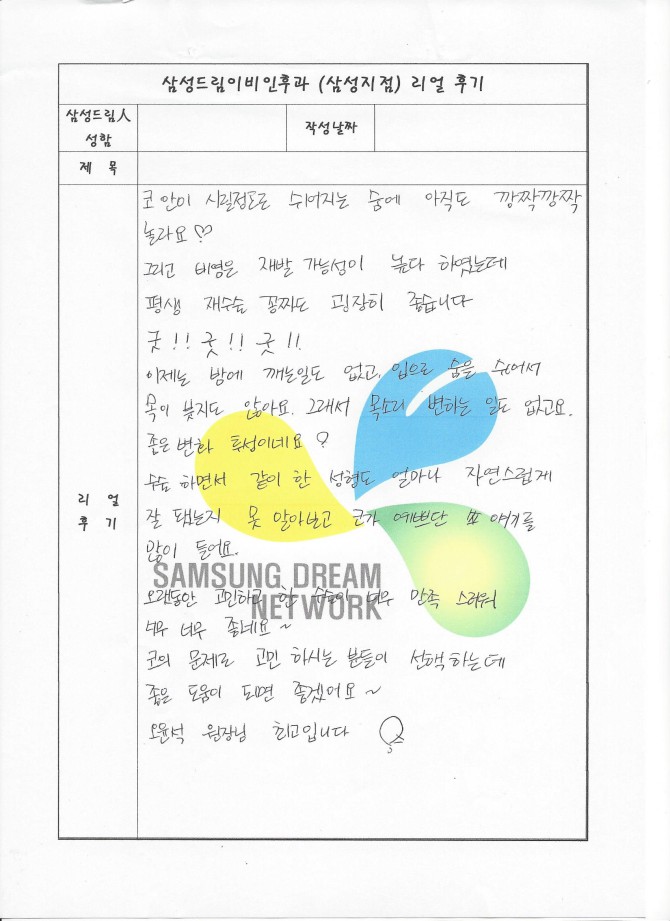 삼성드림이비인후과 (삼성지점) 리얼 후기
삼성드림人
성함
작성날짜
제 목
리 얼
후 기
코 안이 시릴정도로 쉬어지는 숨에 아직도 깜짝깜짝
놀라요♡
그리고 비염은 재발 가능성이 높다 하였는데
평생 재수술 공짜도 굉장히 좋습니다
굿!! 굿!! 굿!!
이제는 밤에 깨는일도 없고, 입으로 숨을 쉬어서
목이 붓지도 않아요. 그래서 목소리 변하는 일도 없고요.
좋은변화 투성이네요?
수술 하면서 같이 한 성형도 얼마나 자연스럽게
잘 됐는지 못 알아보고 코가 예쁘단 얘기를
많이 들어요.
SAMSUNG DREAM
NETWORK
오랫동안 고민하고 한 수술이 너무 만족 스러워
너무 너무 좋네요~
코의 문제로 고민 하시는 분들이 선택하는데
좋은 도움이 되면 좋겠어요~
오윤석 원장님 최고입니다